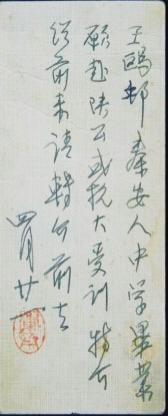 王鸥邨 秦安人中学毕业
愿赴陕公或抗大受训 特介
绍前来请转介前去
四月廿一